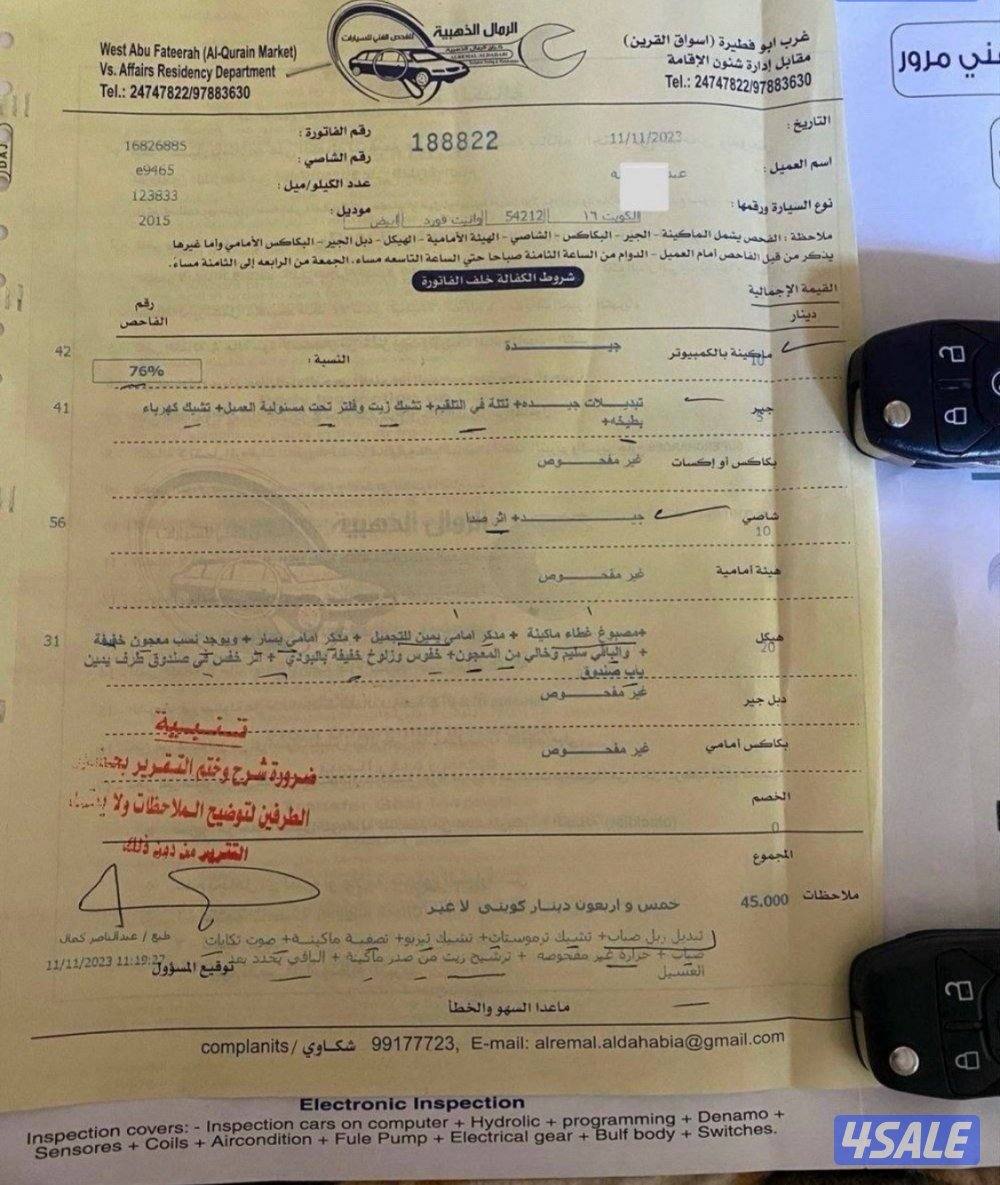 الرمال الذهبية
للفحص الفني للسيارات
غرب ابو فطيرة (اسواق القرين)
مقابل إدارة شئون الإقامة
Tel.: 24747822/97883630
West Abu Fateerah (Al-Qurain Market)
Vs. Affairs Residency Department
Tel.: 24747822/97883630
ني مرور
التاريخ : 11/11/2023
188822
رقم الفاتورة : 16826885
اسم العميل :
رقم الشاصي : e9465
عدد الكيلو/ميل : 123833
نوع السيارة ورقمها : الكويت ١٦ 54212 وانيت فورد ابيض
موديل : 2015
ملاحظة : الفحص يشمل الماكينة - الجير - البكاكس - الشاصي - الهيئة الأمامية - الهيكل - دبل الجير - البكاكس الأمامي وأما غيرها
يذكر من قبل الفاحص أمام العميل - الدوام من الساعة الثامنة صباحا حتي الساعة التاسعه مساء. الجمعة من الرابعه إلى الثامنة مساء.
شروط الكفالة خلف الفاتورة
القيمة الإجمالية
دينار
رقم
الفاحص
ماكينة بالكمبيوتر 10 جيـــدة النسبة : 76% 42
جير 5 تبديـلات جيـده+ تتلة في التلقيم+ تشيك زيت وفلتر تحت مسئولية العميل+ تشيك كهرباء 41
بطيخه+
بكاكس أو إكسات غير مفحـــوص
شاصي 10 جيـــد+ اثر صدأ 56
هيئة أمامية غير مفحـــوص
هيكل 20 +مصبوغ غطاء ماكينة + مدكر امامي يمين للتجميل + مدكر امامي يسار + ويوجد نسب معجون خفيفة 31
+ والباقي سليم وخالي من المعجون+ خفوس وزلوخ خفيفة بالبودي + اثر خفس في صندوق طرف يمين
باب صندوق
دبل جير غير مفحـــوص
بكاكس أمامي غير مفحـــوص
تنبيـــة
ضرورة شرح وختم التقرير
الطرفين لتوضيح الملاحظات ولا
التقرير من دون ذلك
الخصم 0
المجموع 45.000
خمس و اربعون دينـار كويتى لا غير
ملاحظات
تبديل ربل صباب+ تشيك ترموستات+ تشيك تيربو+ تصفية ماكينـة+ صوت تكايات
صباب + حراره غير مفحوصه + ترشيح زيت من صدر ماكينة + الباقي يحدد بعد
الغسيل
طبع / عبدالناصر كمال
11/11/2023 11:19:27
توقيع المسؤول
ماعدا السهو والخطأ
complanits / شكاوي 99177723, E-mail: alremal.aldahabia@gmail.com
Electronic Inspection
Inspection covers: - Inspection cars on computer + Hydrolic + programming + Denamo +
Sensores + Coils + Aircondition + Fule Pump + Electrical gear + Bulf body + Switches.
4SALE